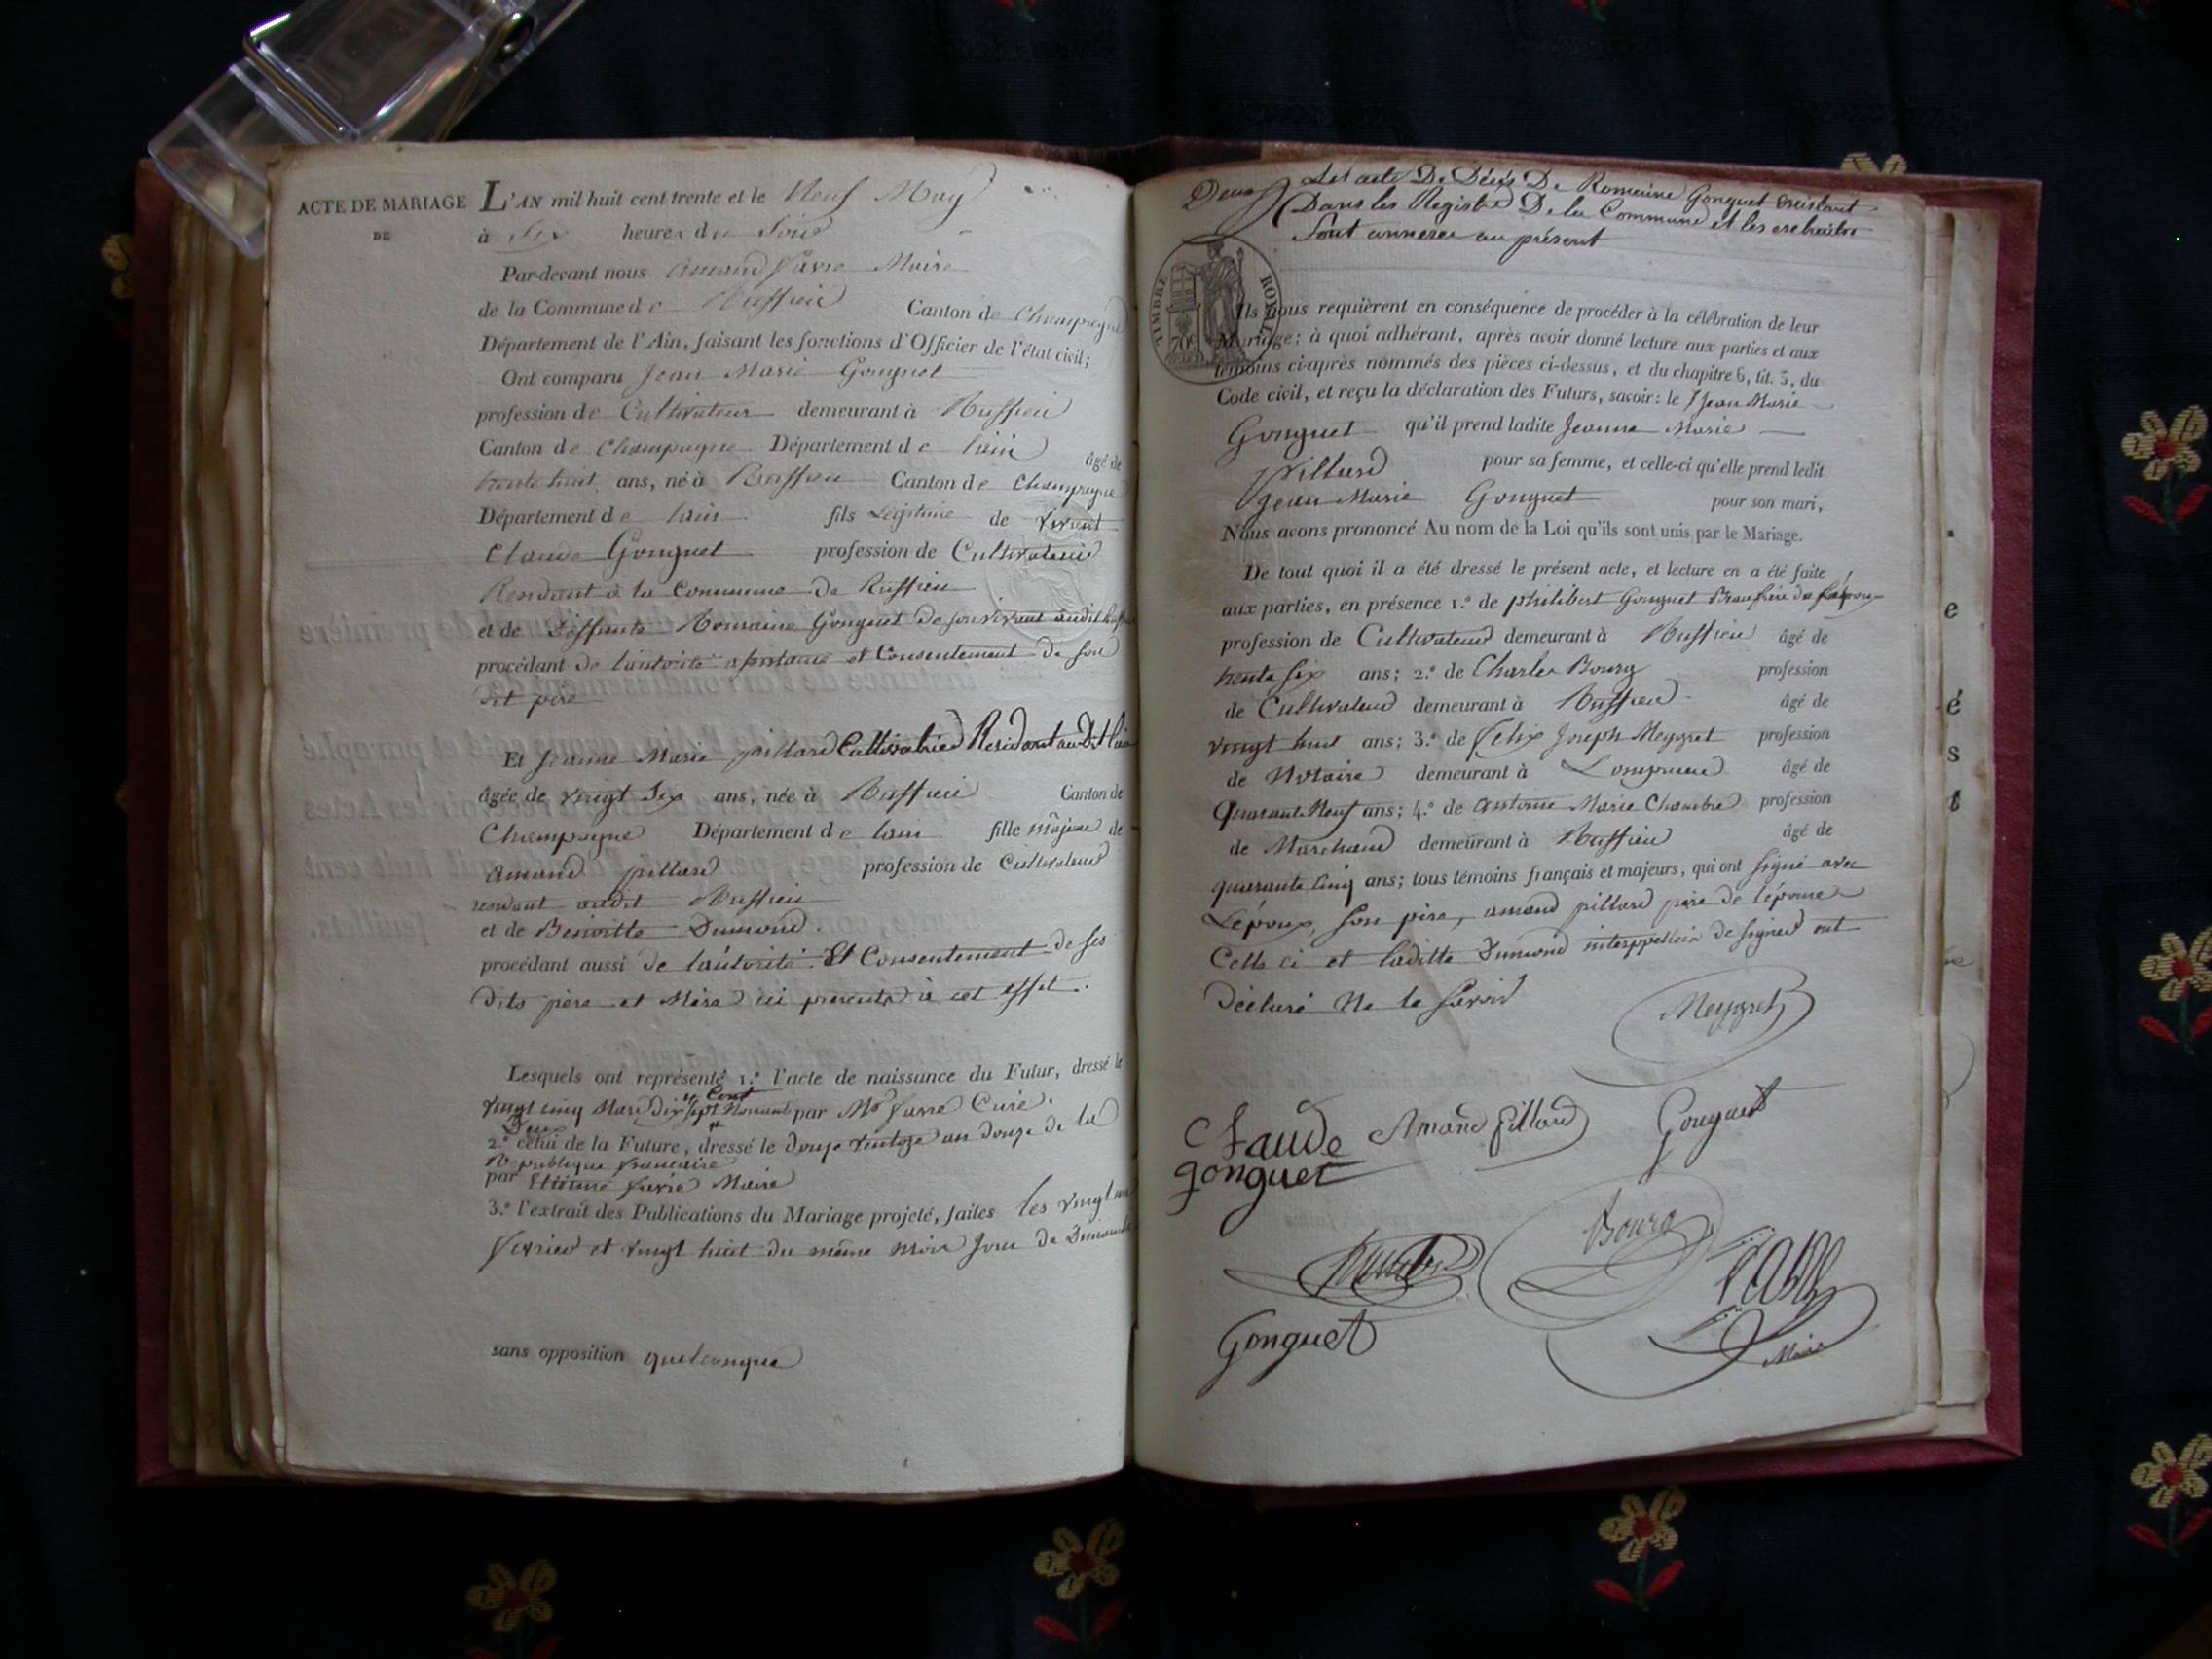 ACTE DE MARIAGE
DE
L'AN mil huit cent trente et le Neuf May
à Six heures du Soir
Par-devant nous Amand favre Maire
de la Commune de Ruffieu Canton de Champagne
Département de l'Ain, faisant les fonctions d'Officier de l'état civil;
Ont comparu Jean Marie Gonguet
profession de Cultivateur demeurant à Ruffieu
Canton de Champagne Département de lain âgé de
trente huit ans, né à Ruffieu Canton de Champagne
Département de lain fils Légitime de vivant
Claude Gonguet profession de Cultivateur
Residant à la Commune de Ruffieu
et de Deffunte Romaine Gonguet de son vivant audit
procédant de lautorité assistance et Consentement de son
dit père
Et Jeanne Marie pillard Cultivatrice Residant au Dit lieu
âgée de vingt Six ans, née à Ruffieu Canton de
Champagne Département de lain fille majeure de
Amand pillard profession de Cultivateur
residant audit Ruffieu
et de Benoitte Dumond.
procédant aussi de lautorité Et Consentement de ses
dits père et Mère ici presents à cet effet.
Lesquels ont représenté 1.° l'acte de naissance du Futur, dressé le
vingt cinq Mars Dix sept Cent Nonante Deux par Mr favre Curé.
2.° celui de la Future, dressé le douze ventoze an douze de la
Republique francaise
par Etienne favre Maire
3.° l'extrait des Publications du Mariage projeté, faites les vingt un
fevrier et vingt huit du même mois jour de Dimanche
sans opposition quelconque
Deux Let acte De Décès De Romaine Gonguet existant
Dans les Registre De la Commune et les extraits
Sont annexee au présent
TIMBRE ROYAL
70c
Ils nous requièrent en conséquence de procéder à la célébration de leur
Mariage; à quoi adhérant, après avoir donné lecture aux parties et aux
témoins ci-après nommés des pièces ci-dessus, et du chapitre 6, tit. 5, du
Code civil, et reçu la déclaration des Futurs, savoir: le Jean Marie
Gonguet qu'il prend ladite Jeanne Marie
pillard pour sa femme, et celle-ci qu'elle prend ledit
Jean Marie Gonguet pour son mari,
Nous avons prononcé Au nom de la Loi qu'ils sont unis par le Mariage.
De tout quoi il a été dressé le présent acte, et lecture en a été faite
aux parties, en présence 1.° de philibert Gonguet Beau frère de
profession de Cultivateur demeurant à Ruffieu âgé de
trente Six ans; 2.° de Charles Bourg profession
de Cultivateur demeurant à Ruffieu âgé de
vingt huit ans; 3.° de Félix Joseph Meygret profession
de Notaire demeurant à âgé de
Quarante Neuf ans; 4.° de antoine Marie Chambre profession
de Marchand demeurant à Ruffieu âgé de
quarante Cinq ans; tous témoins français et majeurs, qui ont signé avec
Lépoux, son père, amand pillard père de lépouse
Celle ci et laditte Dumond interppellées de signer ont
déclaré Ne le savoir
Meygret
Claude Amand pillard Gonguet
gonguet
Bourg
favre
Gonguet Maire